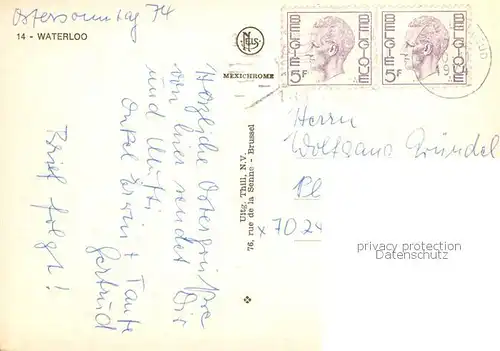 Ostersonntag 74
14 - WATERLOO
Herzliche Ostergrüße
von hier sendet Dir
und Mutti
Onkel Erwin + Tante
Gertrud
Brief folgt!
Nels
MEXICHROME
Uitg. Thill, N.V.
76, rue de la Senne - Brussel
BELGIQUE
BELGIE
5F
BELGIQUE
BELGIE
5F
Herrn
Wolfgang Gründel
x 7024
privacy protection
Datenschutz